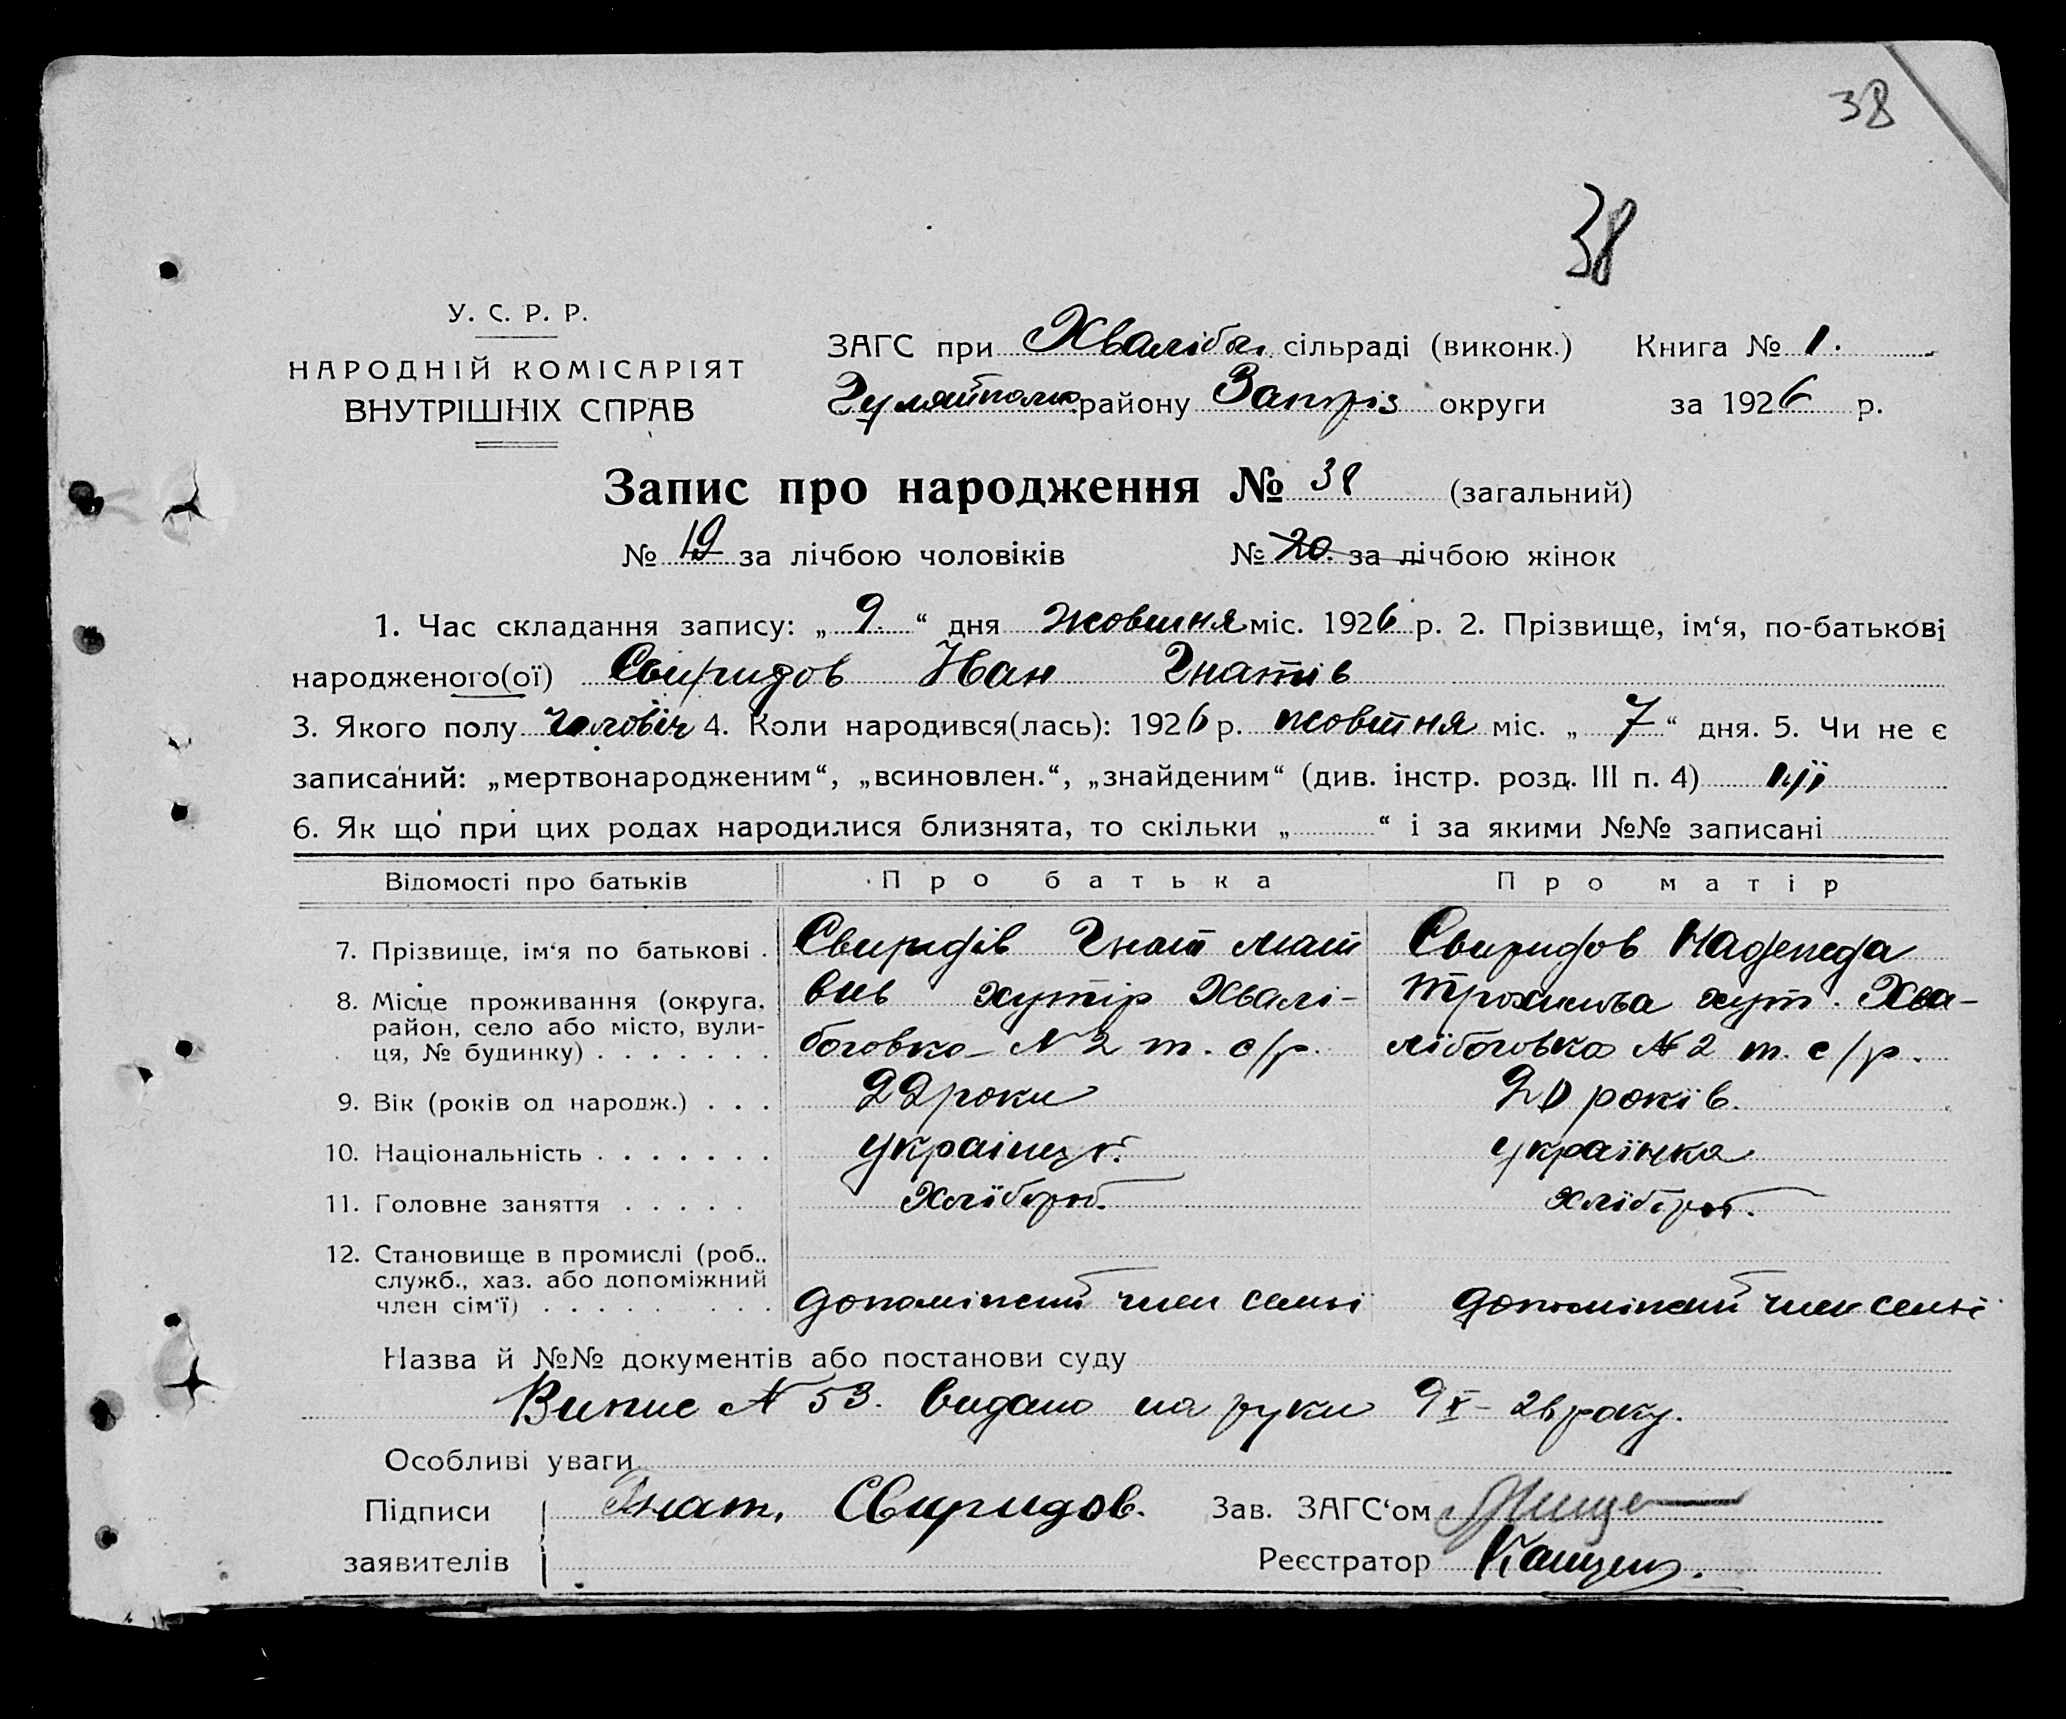 38
38
У. С. Р. Р.
НАРОДНІЙ КОМІСАРІЯТ
ВНУТРІШНІХ СПРАВ
ЗАГС при Хвалібог. сільраді (виконк.) Книга № 1.
Гуляйполь району Запріз округи за 1926 р.
Запис про народження № 38 (загальний)
№ 19 за лічбою чоловіків № 20 за лічбою жінок
1. Час складання запису: „ 9 “ дня жовтня міс. 1926 р. 2. Прізвище, ім‘я, по-батькові
народженого(ої) Свиридов Іван Гнатів
3. Якого полу чоловіч 4. Коли народився(лась): 1926 р. жовтня міс. „ 7 “ дня. 5. Чи не є
записаний: „мертвонародженим“, „всиновлен.“, „знайденим“ (див. інстр. розд. III п. 4)
6. Як що при цих родах народилися близнята, то скільки „ “ і за якими №№ записані
Відомості про батьків Про батька Про матір
7. Прізвище, ім‘я по батькові . Свиридів Гнат Мат Свиридов Надежда
8. Місце проживання (округа, вив хутір Хвалі- хут. Хва-
район, село або місто, вули-
ця, № будинку) . . . . . . . боговка N 2 т. с/р. лібоговка № 2 т. с/р.
9. Вік (років од народж.) . . . 22 роки 20 років.
10. Національність . . . . . . . українец. українка
11. Головне заняття . . . . . Хлібороб. хлібороб.
12. Становище в промислі (роб.,
служб., хаз. або допоміжний
член сім‘ї) . . . . . . . . допоміжний член семьі допоміжний член семьі
Назва й №№ документів або постанови суду
Випис N 53. видано на руки 9 X - 26 року.
Особливі уваги
Підписи Гнат. Свиридов. Зав. ЗАГС‘ом
заявителів Реєстратор